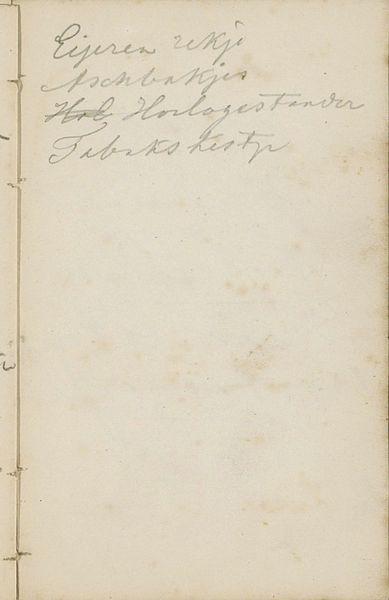 Eijeren rekje
Aschbakjes
Hol Horlogestander
Tabakskistje